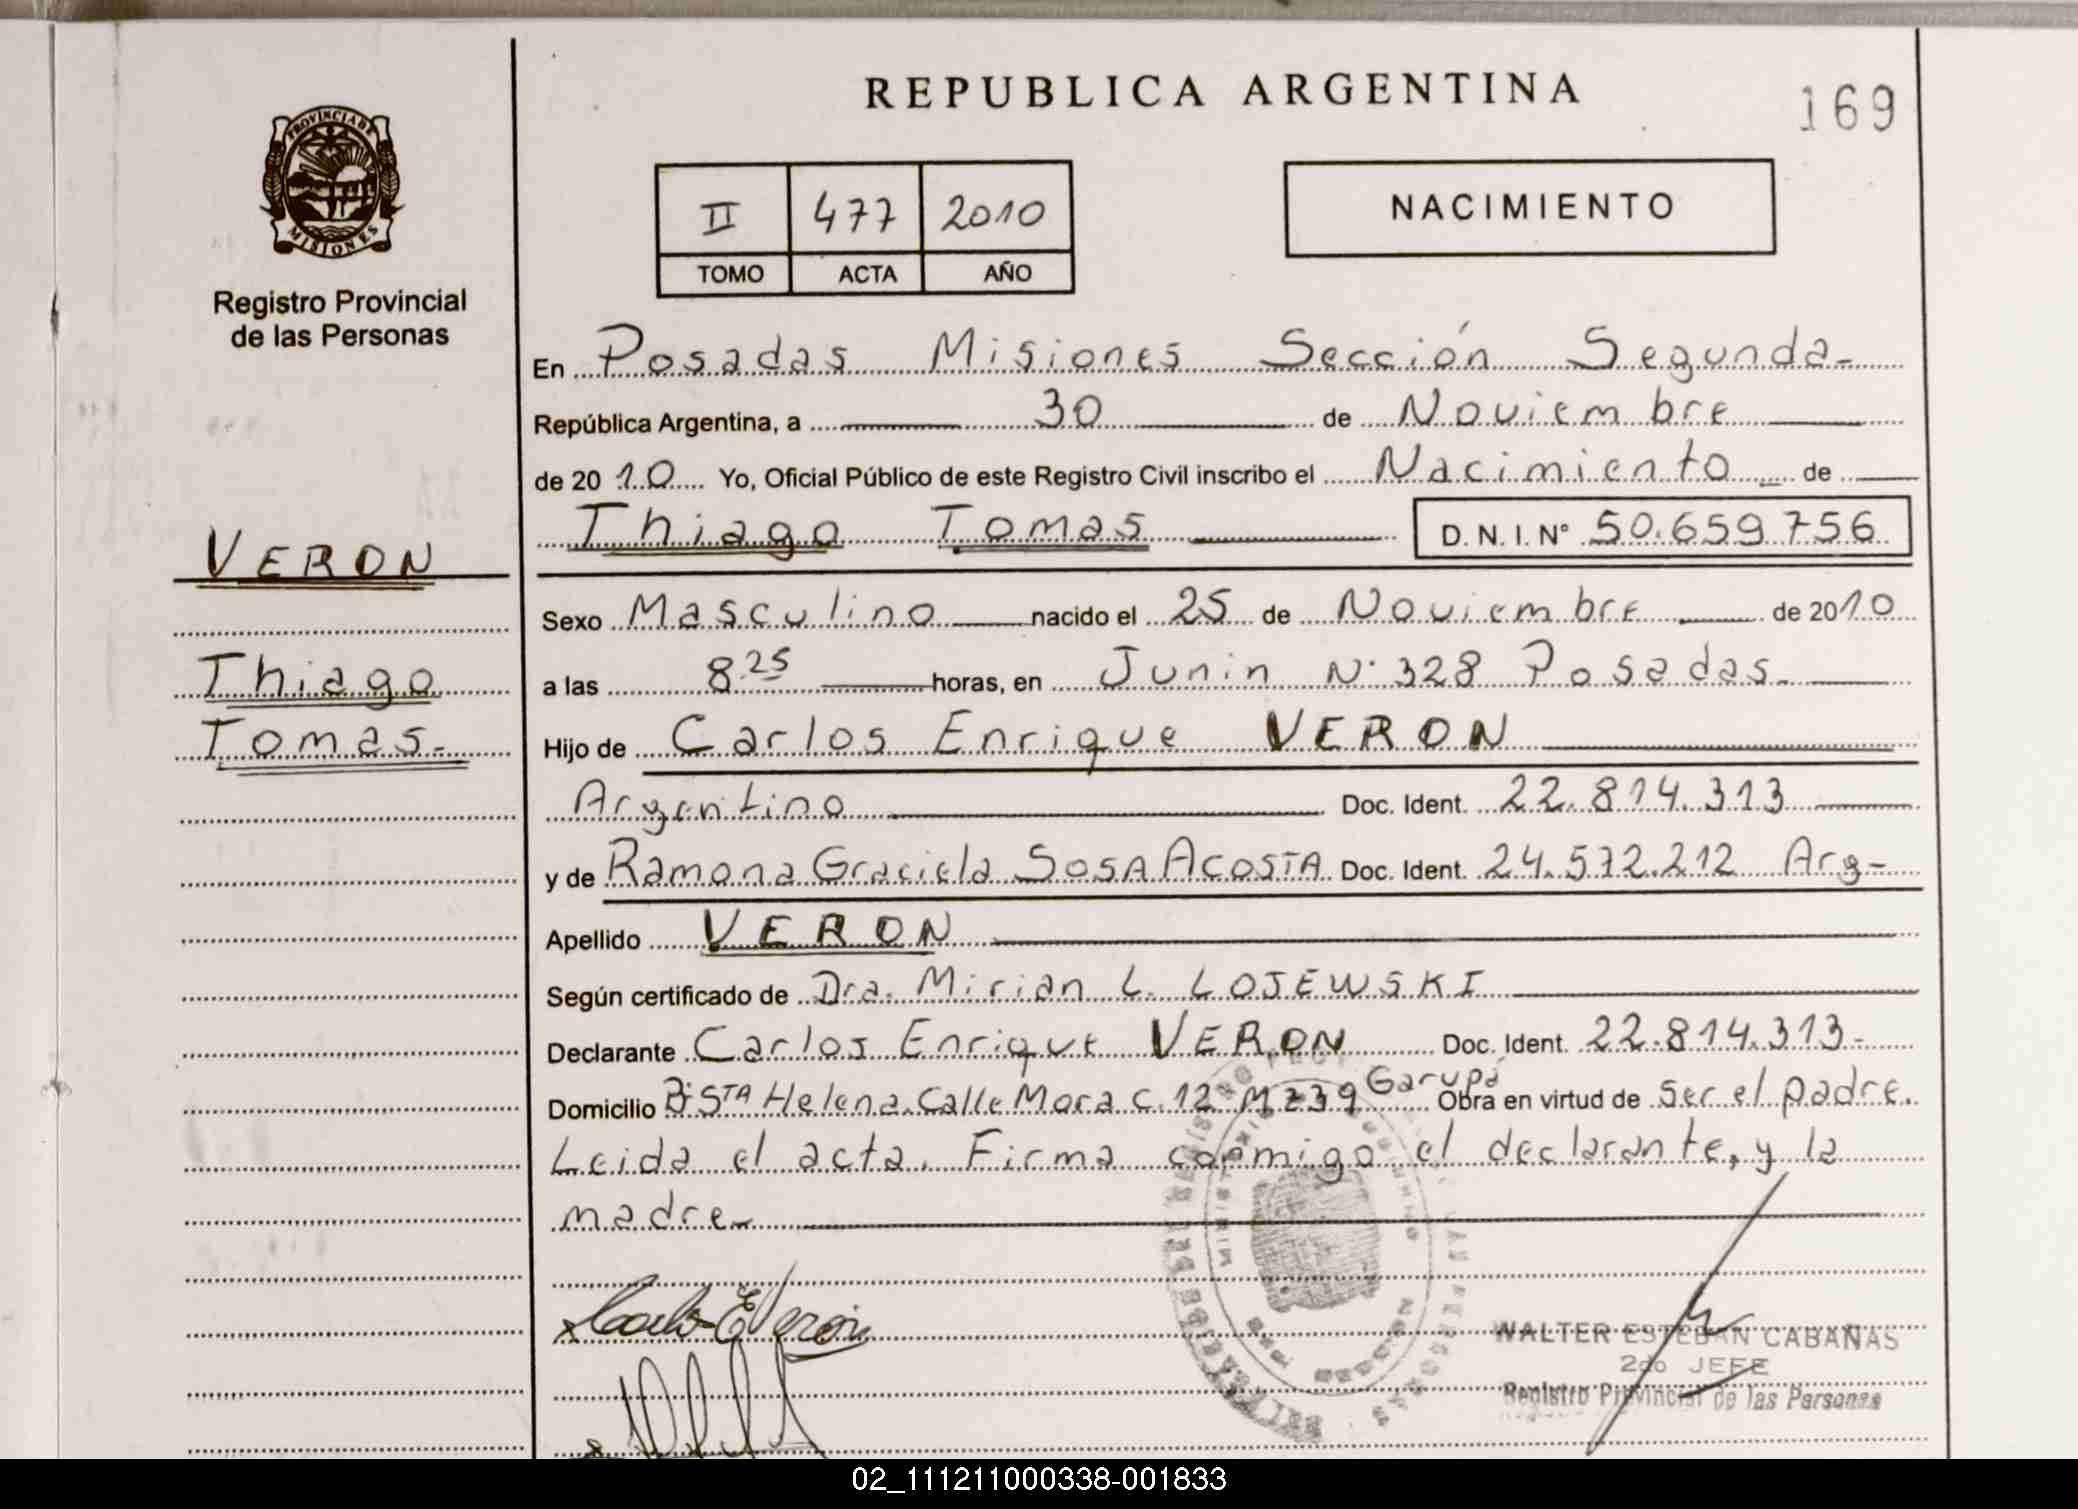 REPUBLICA ARGENTINA
169
PROVINCIA DE
MISIONES
Registro Provincial
de las Personas
II 477 2010
TOMO ACTA AÑO
NACIMIENTO
En Posadas Misiones Sección Segunda-
República Argentina, a 30 de Noviembre
de 2010 Yo, Oficial Público de este Registro Civil inscribo el Nacimiento de
Thiago Tomas D.N.I. Nº 50.659.756
VERON
Thiago
Tomas.-
Sexo Masculino nacido el 25 de Noviembre de 2010
a las 8.25 horas, en Junin Nº 328 Posadas.
Hijo de Carlos Enrique VERON
Argentino Doc. Ident. 22.814.313
y de Ramona Graciela SOSA ACOSTA Doc. Ident. 24.572.212 Arg-
Apellido VERON
Según certificado de Dra. Mirian L. LOJEWSKI
Declarante Carlos Enrique VERON Doc. Ident. 22.814.313-
Domicilio Bº STA Helena Calle Mora C. 12 Mz 39 Garupá Obra en virtud de ser el padre.
Leida el acta. Firma conmigo el declarante, y la
madre
Carlos E Veron
WALTER ESTEBAN CABAÑAS
2do JEFE
Registro Provincial de las Personas
02_111211000338-001833